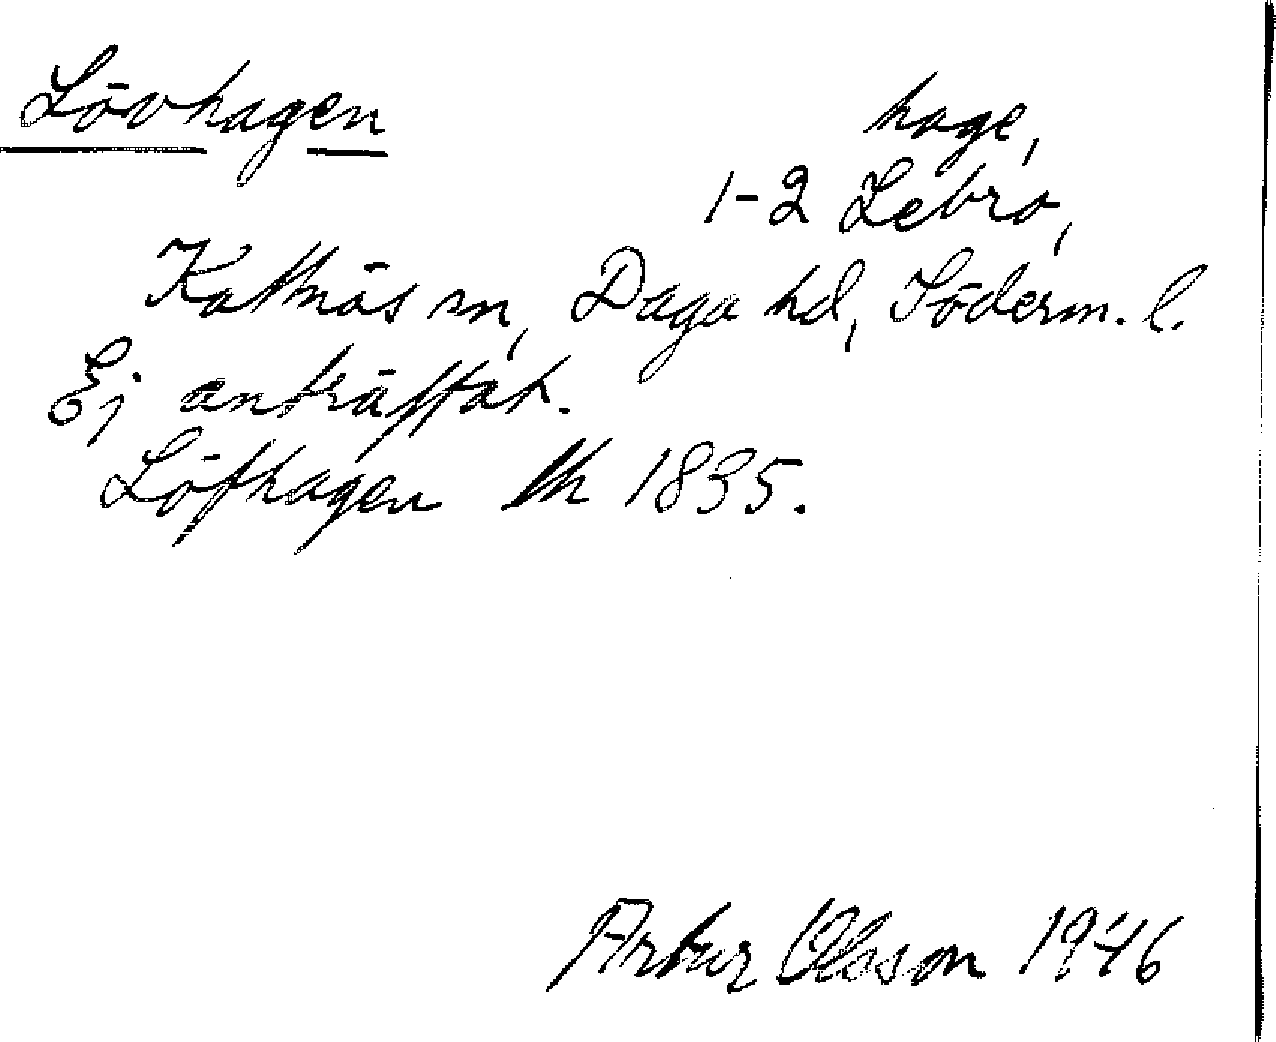 Lövhagen
hage,
1-2 Lebro,
Kattnäs sn, Daga hd, Söderm. l.
Ej anträffat.
Löfhagen lh 1835.
Artur Olsson 1946